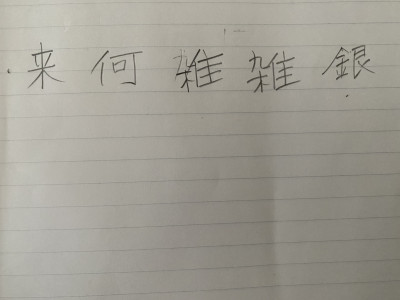 来何雑雑銀